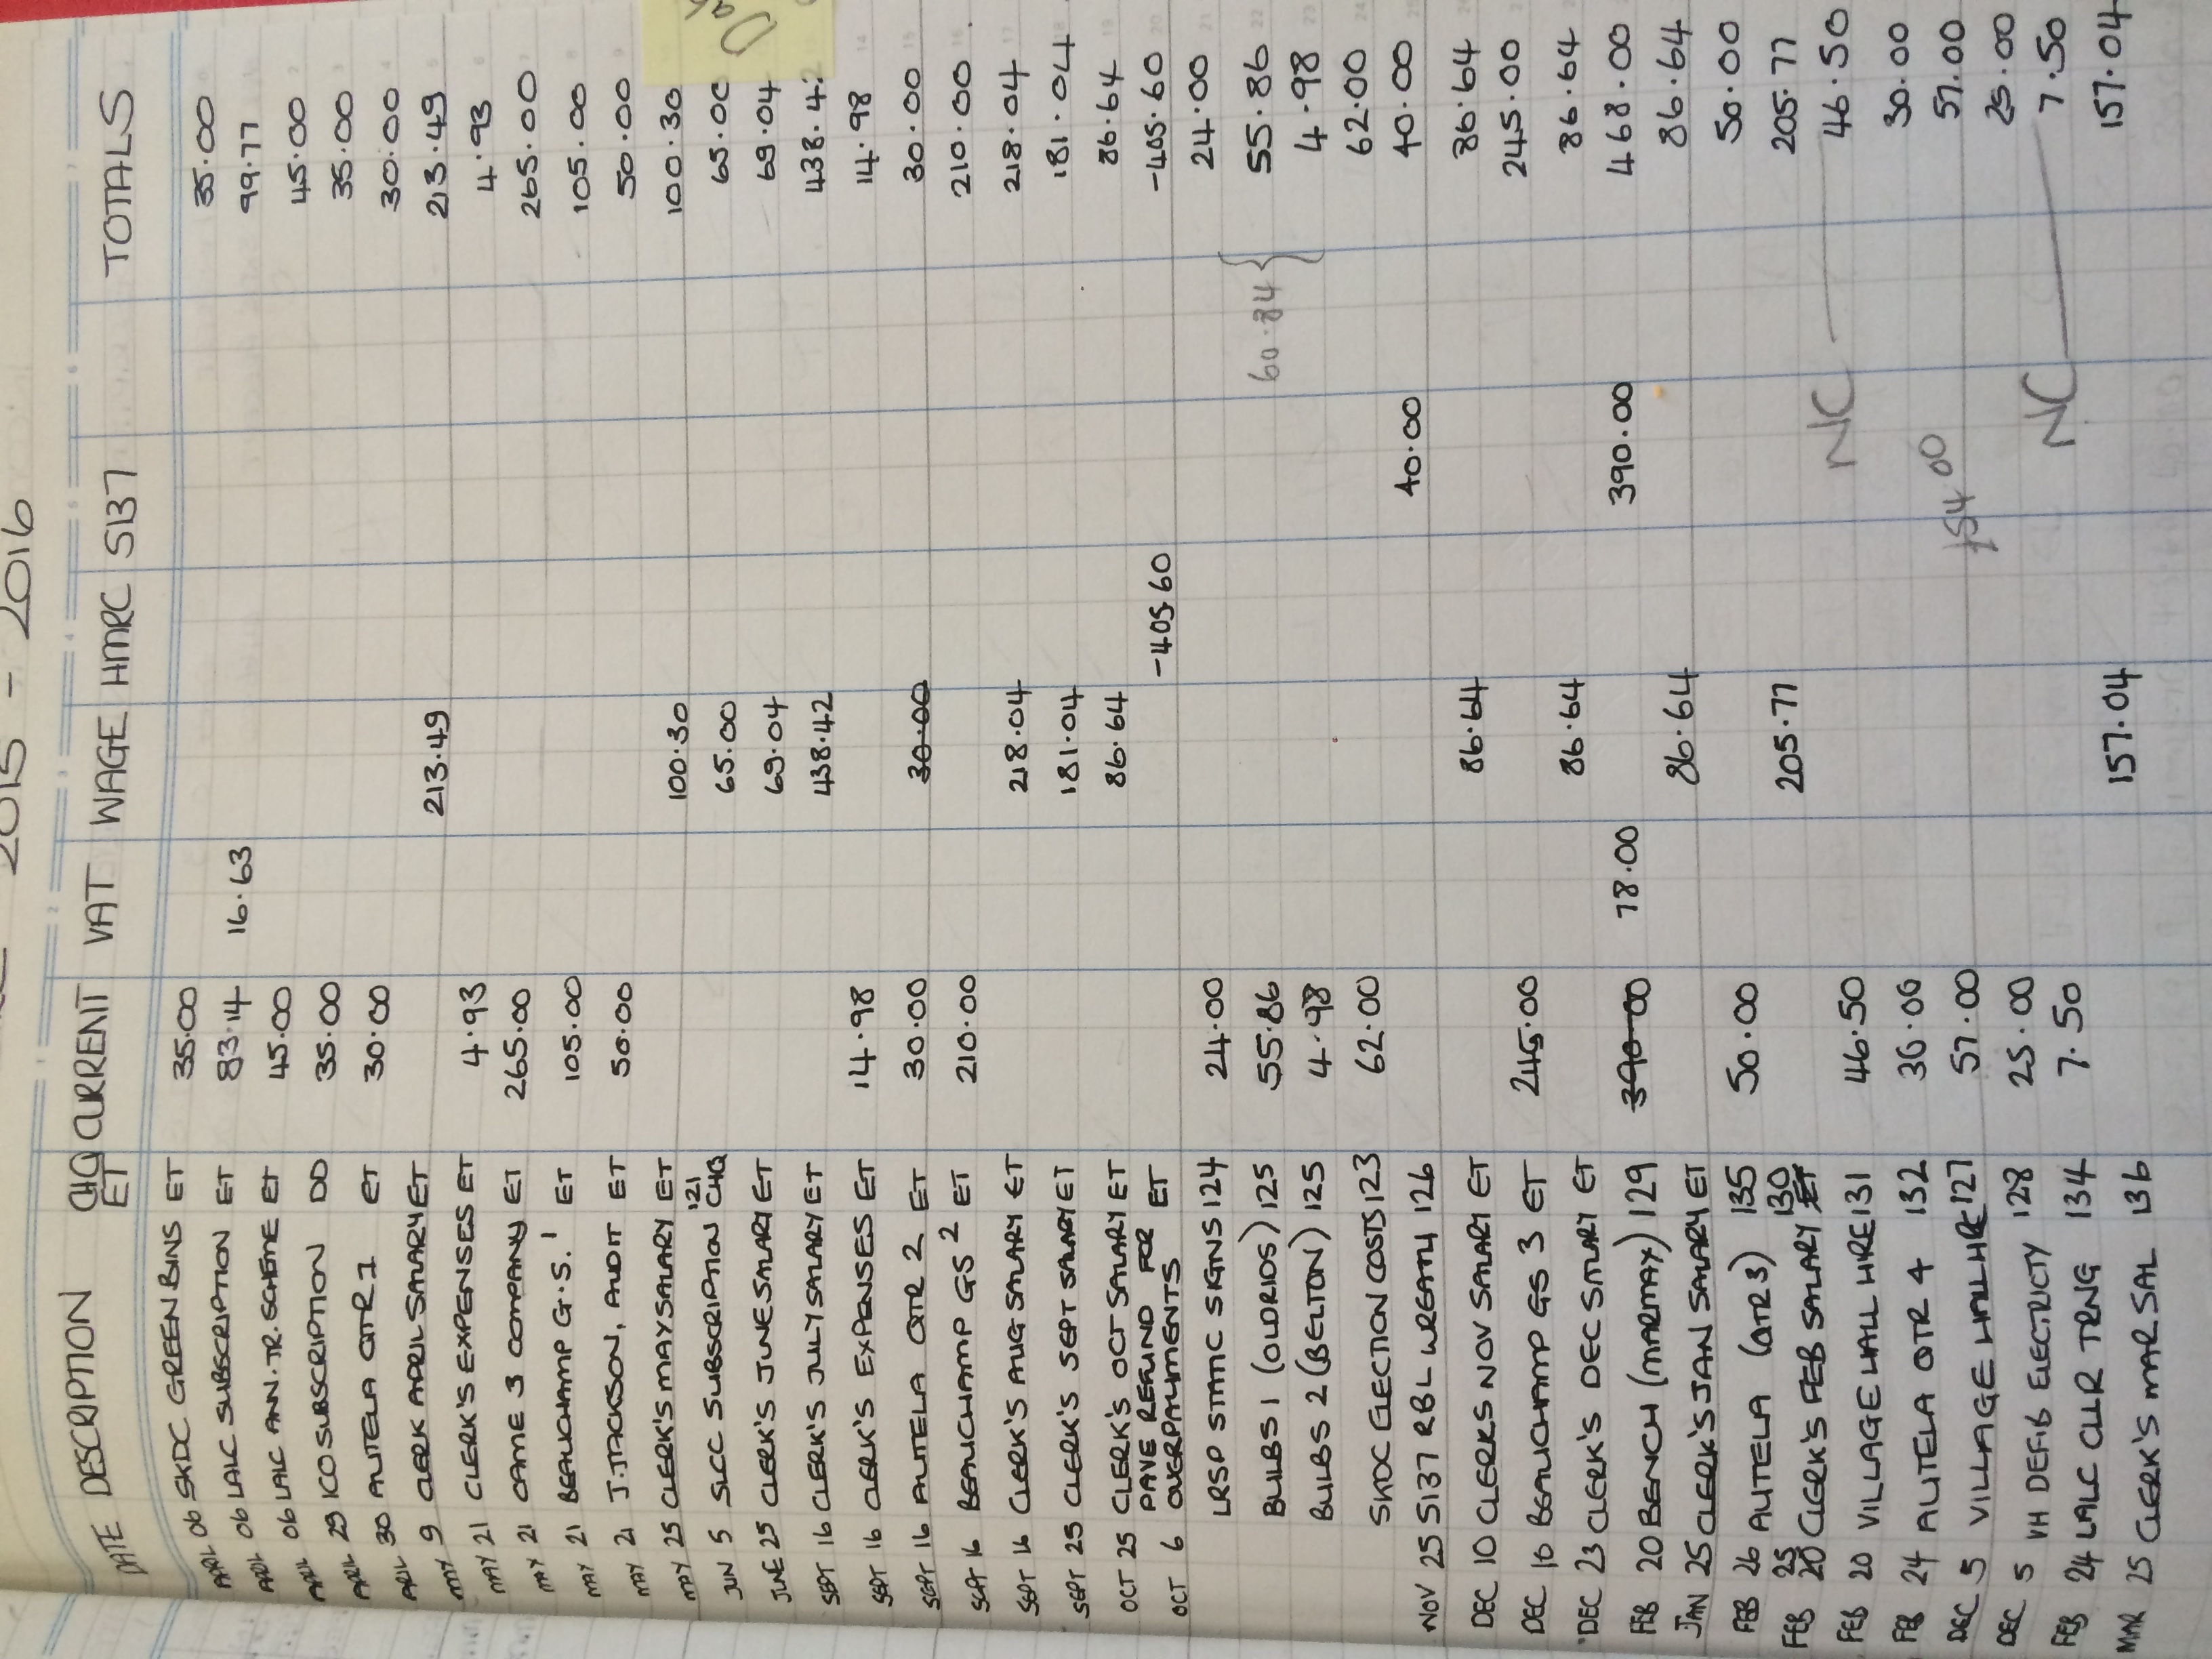 2015 - 2016
DATE DESCRIPTION CHQ ET CURRENT VAT WAGE HMRC S137 TOTALS
APRIL 06 SKDC GREEN BINS ET 35.00 35.00
APRIL 06 LALC SUBSCRIPTION ET 83.14 16.63 99.77
APRIL 06 LALC ANN. TR. SCHEME ET 45.00 45.00
APRIL 29 ICO SUBSCRIPTION DD 35.00 35.00
APRIL 30 AUTELA QTR 1 ET 30.00 30.00
MAY 9 CLERK APRIL SALARY ET 213.49 213.49
MAY 21 CLERK'S EXPENSES ET 4.93 4.93
MAY 21 CAME 3 COMPANY ET 265.00 265.00
MAY 21 BEAUCHAMP G.S. 1 ET 105.00 105.00
MAY 21 J. JACKSON, AUDIT ET 50.00 50.00
MAY 25 CLERK'S MAY SALARY ET 100.30 100.30
JUN 5 SLCC SUBSCRIPTION 121 CHQ 65.00 65.00
JUNE 25 CLERK'S JUNE SALARY ET 69.04 69.04
SEPT 16 CLERK'S JULY SALARY ET 438.42 438.42
SEPT 16 CLERK'S EXPENSES ET 14.98 14.98
SEPT 16 AUTELA QTR 2 ET 30.00 30.00 30.00
SEPT 16 BEAUCHAMP GS 2 ET 210.00 210.00
SEPT 16 CLERK'S AUG SALARY ET 218.04 218.04
SEPT 25 CLERK'S SEPT SALARY ET 181.04 181.04
OCT 25 CLERK'S OCT SALARY ET 86.64 86.64
OCT 6 PAYE REFUND FOR OVERPAYMENTS ET -405.60 -405.60
LRSP STATIC SIGNS 124 24.00 24.00
BULBS 1 (OLORIOS) 125 55.86 60.84 55.86
BULBS 2 (BELTON) 125 4.98 4.98
SKDC ELECTION COSTS 123 62.00 62.00
NOV 25 S137 RBL WREATH 126 40.00 40.00
DEC 10 CLERKS NOV SALARY ET 86.64 86.64
DEC 10 BEAUCHAMP GS 3 ET 245.00 245.00
DEC 23 CLERK'S DEC SALARY ET 86.64 86.64
FEB 20 BENCH (MARMAX) 129 390.00 78.00 390.00 468.00
JAN 25 CLERK'S JAN SALARY ET 86.64 86.64
FEB 26 AUTELA (QTR 3) 135 50.00 50.00
FEB 25 20 CLERK'S FEB SALARY 130 ET 205.77 205.77
FEB 20 VILLAGE HALL HIRE 131 46.50 NC 46.50
FEB 24 AUTELA QTR 4 132 30.00 30.00
DEC 5 VILLAGE HALL HIRE 127 57.00 154.00 57.00
DEC 5 VH DEFIB ELECTRICTY 128 25.00 25.00
FEB 24 LALC CLLR TRNG 134 7.50 NC 7.50
MAR 25 CLERK'S MAR SAL 136 157.04 157.04